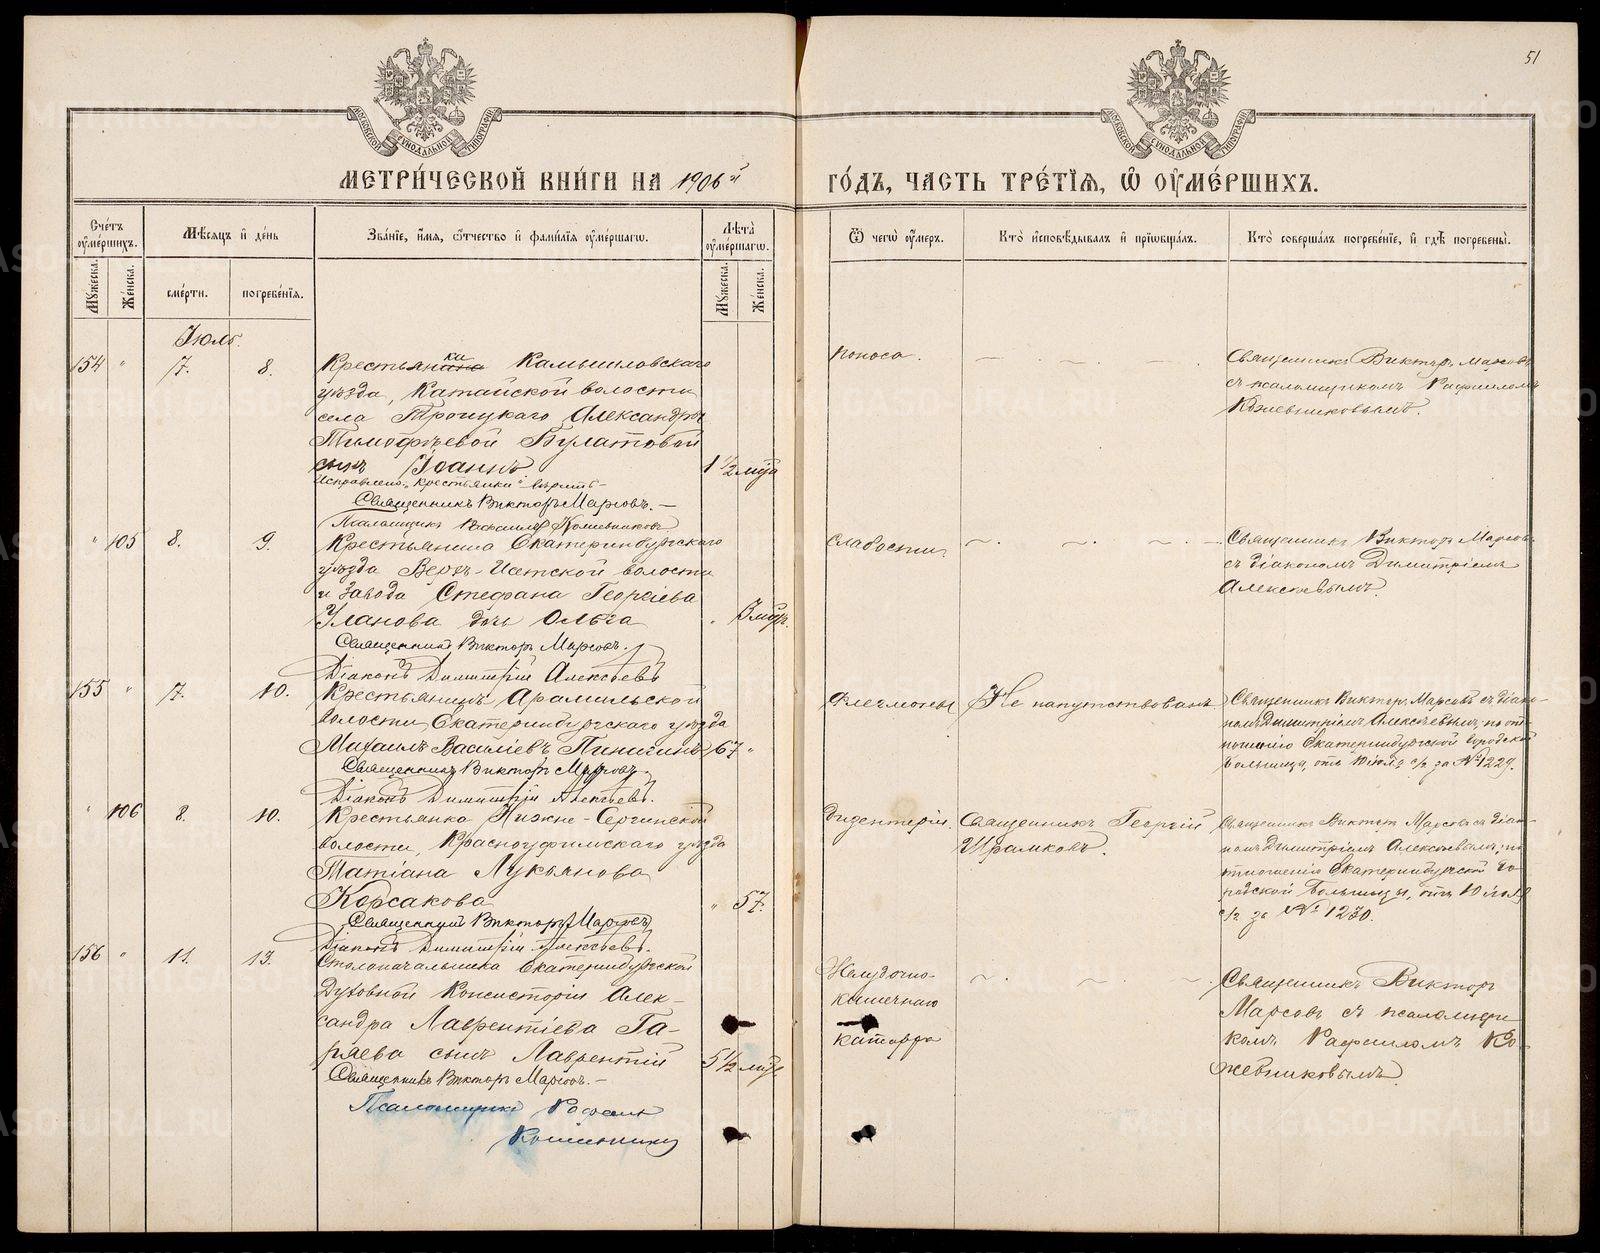 51
МОСКОВСКОЙ СѴНОДАЛЬНОЙ ТИПОГРАФІИ
МОСКОВСКОЙ СѴНОДАЛЬНОЙ ТИПОГРАФІИ
МЕТРИ́ЧЕСКОЙ КНИ́ГИ НА 1906й
ГО́ДЪ, ЧАСТЬ ТРЕ́ТІѦ, Ѡ҆ ОУ҆МЕ́РШИХЪ.
Сче́тъ оу҆ме́ршихъ.
Мѣ́сяцъ и҆ де́нь
Зва́нїе, и҆́мя, ѻ҆́тчество и҆ фами́лїя оу҆ме́ршагѡ.
Лѣ́та оу҆ме́ршагѡ.
Ѿ чегѡ̀ оу҆́меръ.
Кто̀ и҆сповѣ́дывалъ и҆ прїѡбща́лъ.
Кто̀ соверша́лъ погребе́нїе, и҆ гдѣ̀ погребены̀.
Мꙋ́жеска.
Же́нска.
сме́рти.
погребе́нїя.
Мꙋ́жеска.
Же́нска.
Іюль.
154 " 7. 8.
Крестьянки Камышловскаго
уѣзда, Катайской волости
села Троицкаго Александры
Тимофѣевой Булатовой
сынъ Іоаннъ.
1 1/2 мѣс
Исправлено: "Крестьянки" вѣрить
Священникъ Викторъ Марсовъ. —
Псаломщикъ Рафаилъ Кожевниковъ
поноса.
Священникъ Викторъ Марсовъ
съ псаломщикомъ Рафаиломъ
Кожевниковымъ.
" 105 8. 9.
Крестьянина Екатеринбургскаго
уѣзда Верхъ-Исетской волости
и завода Стефана Георгіева
Уланова дочь Ольга
3 мѣс.
Священникъ Викторъ Марсовъ.
Діаконъ Димитрій Алексѣевъ
слабости.
Священникъ Викторъ Марсовъ
съ діакономъ Димитріемъ
Алексѣевымъ.
155 " 7. 10.
Крестьянинъ Арамильской
волости Екатеринбургскаго уѣзда
Михаилъ Василіевъ
67 "
Священникъ Викторъ Марсовъ.
Діаконъ Димитрій Алексѣевъ.
Флегмоны
Не напутствованъ
Священникъ Викторъ Марсовъ съ діако-
номъ Димитріемъ Алексѣевымъ, по от-
ношенію Екатеринбургской городской
больницы, отъ 10 іюля с/г за № 1229.
" 106 8. 10.
Крестьянка Нижне-Сергинской
волости, Красноуфимскаго уѣзда
Татіана Лукьянова
Корсакова
" 57.
Священникъ Викторъ Марсовъ
Діаконъ Димитрій Алексѣевъ.
Дизентеріи.
Священникъ Георгій
Шрамковъ.
Священникъ Викторъ Марсовъ съ діако-
номъ Димитріемъ Алексѣевымъ, по
отношенію Екатеринбургской го-
родской больницы, отъ 10 іюля
с/г за № 1230.
156 " 11. 13.
Столоначальника Екатеринбургской
Духовной Консисторіи Алек-
сандра Лаврентіева Га-
ряева сынъ Лаврентій
5 1/2 мѣс
Священникъ Викторъ Марсовъ. —
Псаломщикъ Рафаилъ
Кожевниковъ
Желудочно-
кишечнаго
катарра
Священникъ Викторъ
Марсовъ съ псаломщи-
комъ Рафаиломъ Ко-
жевниковымъ.
METRIKI.GASO-URAL.RU